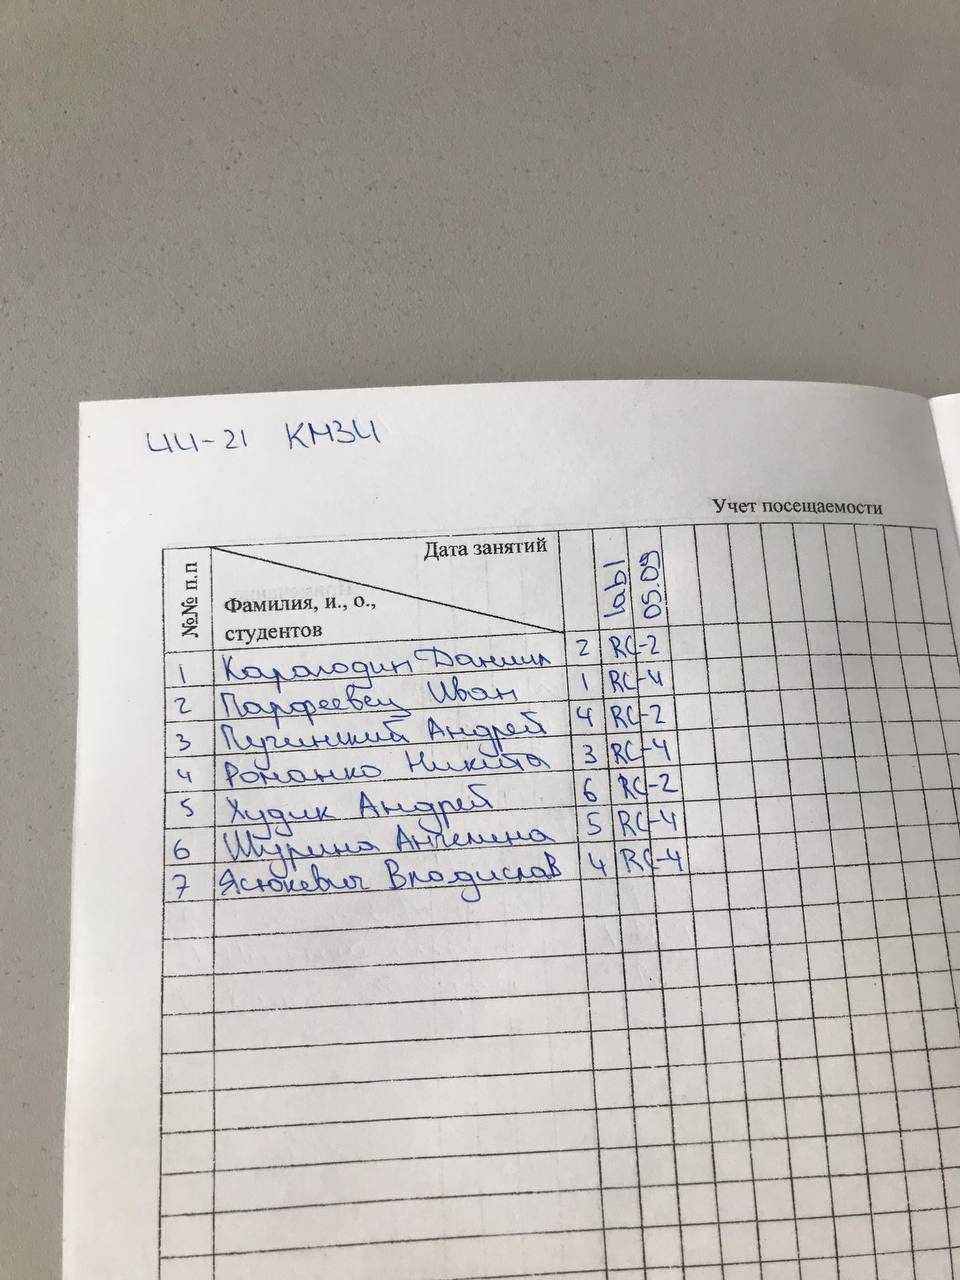 ИИ-21 КМЗИ
Учет посещаемости
№№ п.п
Дата занятий
Фамилия, и., о., студентов
lab1
05.09
1 Карагодин Даниил 2 RC-2
2 Парфеевец Иван 1 RC-4
3 Пучинский Андрей 4 RC-2
4 Романко Никита 3 RC-4
5 Худик Андрей 6 RC-2
6 Шурина Ангелина 5 RC-4
7 Ясюкевич Владислав 4 RC-4